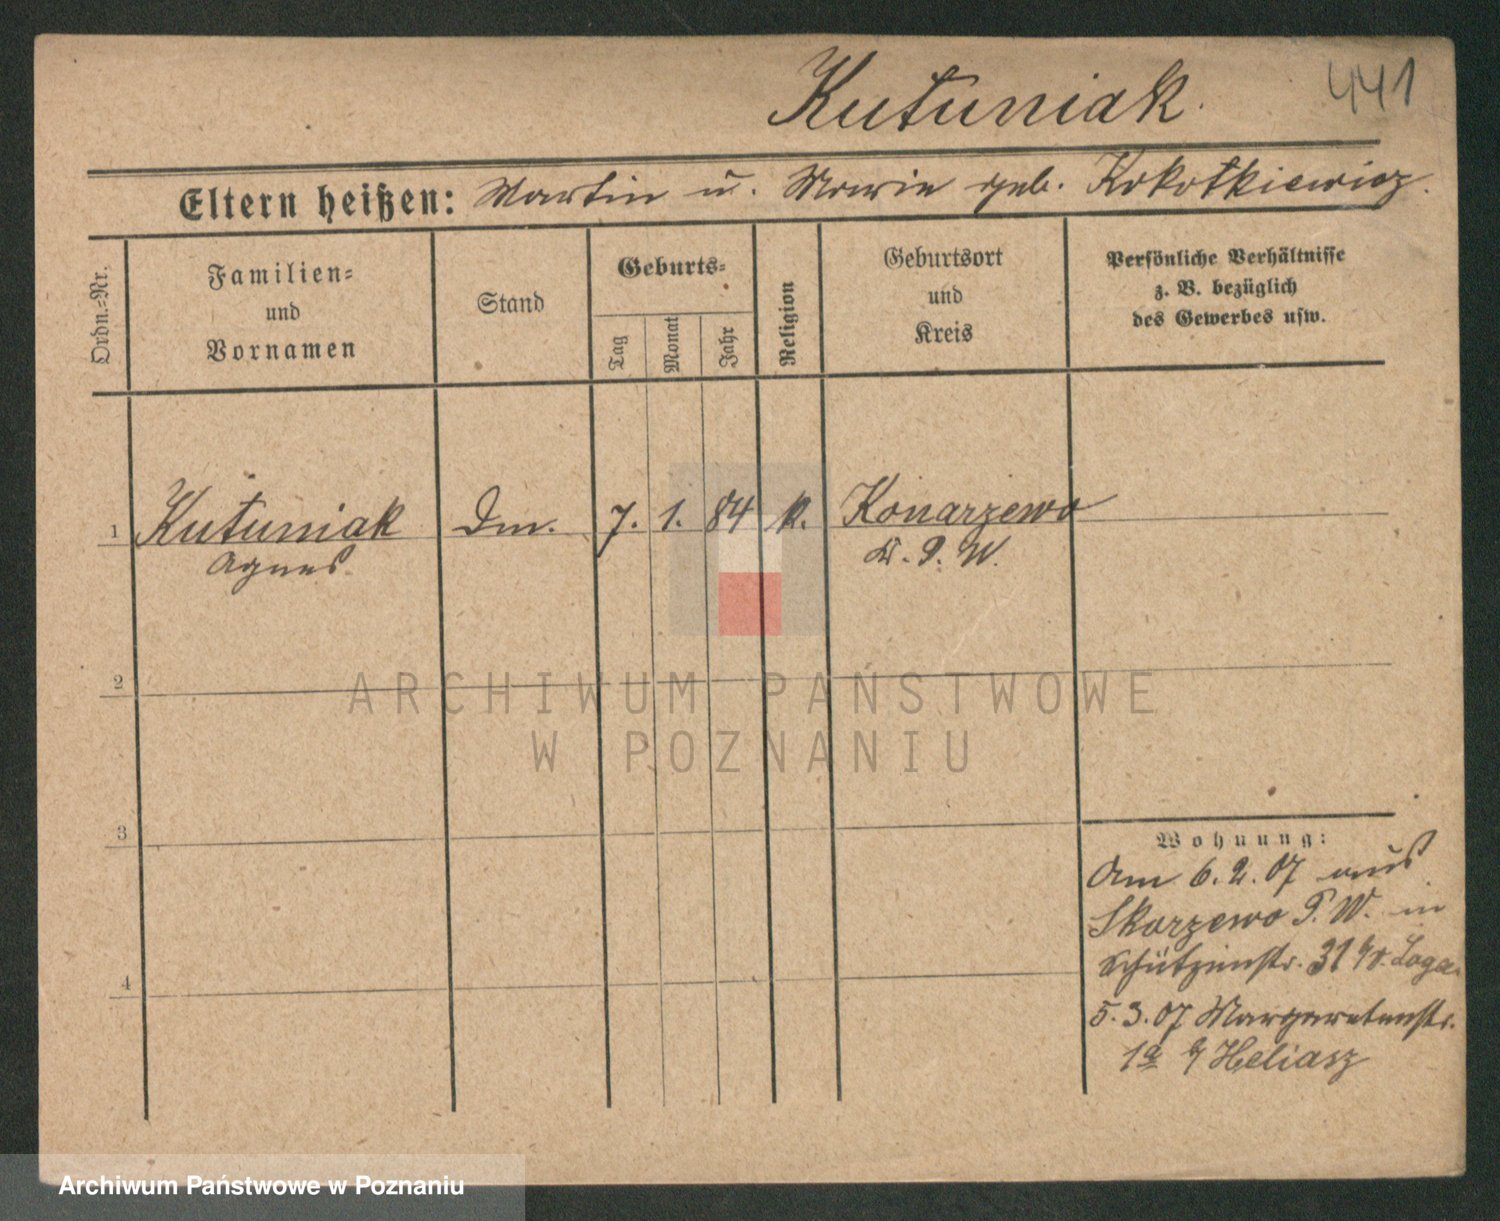 Kutuniak.
441
Eltern heißen: Martin u. Marie geb. Kokotkiewicz.
Ordn.=Nr.
Familien=
und
Vornamen
Stand
Geburts=
Tag
Monat
Jahr
Religion
Geburtsort
und
Kreis
Persönliche Verhältnisse
z. B. bezüglich
des Gewerbes usw.
1 Kutuniak Dm. 7. 1. 84 k. Konarzewo
Agnes. Kr. P. W.
2
ARCHIWUM PAŃSTWOWE
W POZNANIU
3
Wohnung:
Am 6.2.07 aus
Skorzewo P. W. in
Schützenstr. 31
4
5.3.07 Margaretenstr.
1a b/ Heliasz
Archiwum Państwowe w Poznaniu